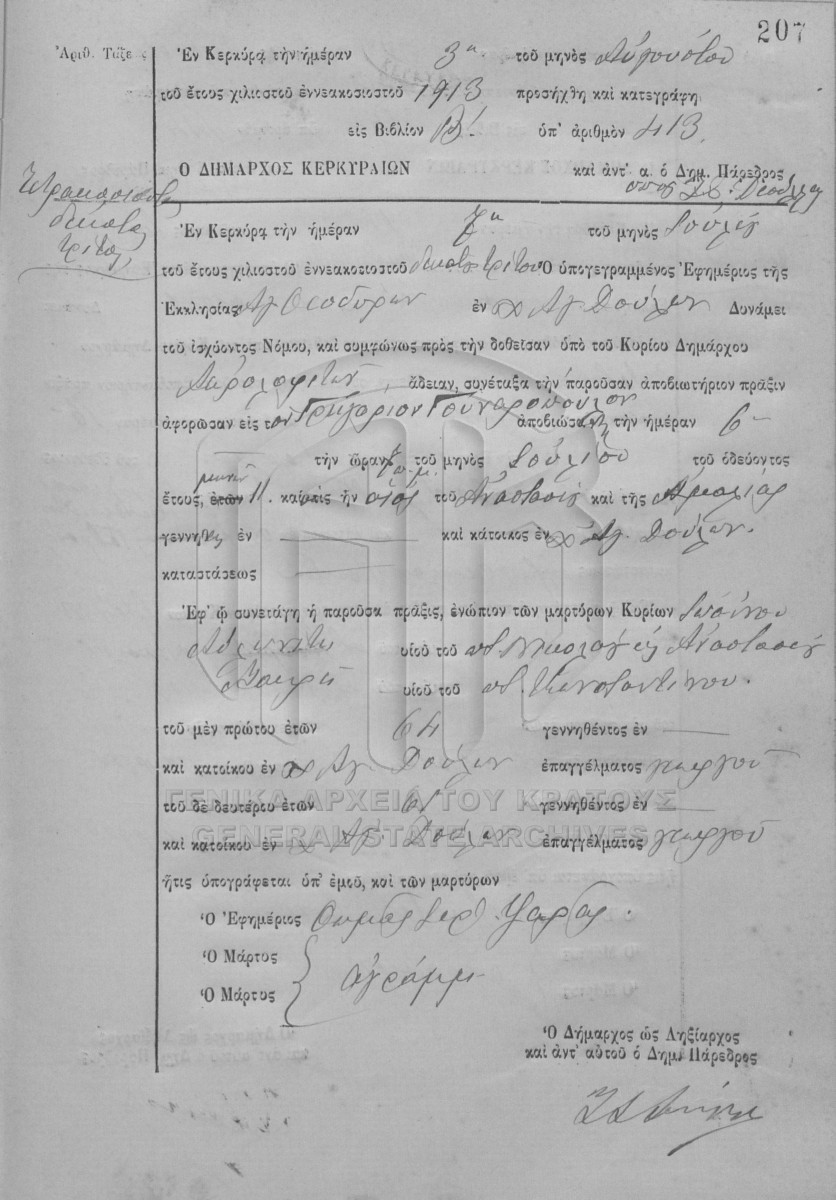 207
Ἀριθ. Τάξεως
Ἐν Κερκύρᾳ τὴν ἡμέραν 3ην τοῦ μηνὸς Αὐγούστου
τοῦ ἔτους χιλιοστοῦ ἐννεακοσιοστοῦ 1913 προσήχθη καὶ κατεγράφη
εἰς Βιβλίον Β! ὑπ' ἀριθμὸν 413.
Ο ΔΗΜΑΡΧΟΣ ΚΕΡΚΥΡΑΙΩΝ καὶ ἀντ' α. ὁ Δημ. Πάρεδρος
Τετρακοσιοστὸς
δέκατος
τρίτος
Ἐν Κερκύρᾳ τὴν ἡμέραν 7ην τοῦ μηνὸς Ἰουλίου
τοῦ ἔτους χιλιοστοῦ ἐννεακοσιοστοῦ δεκάτου τρίτου Ὁ ὑπογεγραμμένος Ἐφημέριος τῆς
Ἐκκλησίας Ἁγ. Θεοδώρων ἐν χ Ἁγ. Δούλων Δυνάμει
τοῦ ἰσχύοντος Νόμου, καὶ συμφώνως πρὸς τὴν δοθεῖσαν ὑπὸ τοῦ Κυρίου Δημάρχου
ἄδειαν, συνέταξα τὴν παροῦσαν ἀποβιωτήριον πρᾶξιν
ἀφορῶσαν εἰς τὸν Γρηγόριον Γουναρόπουλον ἀποβιώσαντα τὴν ἡμέραν 6ην
τὴν ὥραν 7 π.μ. τοῦ μηνὸς Ἰουλίου τοῦ ὁδεύοντος
ἔτους, ἐτῶν μηνῶν 11. καὶ ὅστις ἦν υἱὸς τοῦ Ἀναστασίου καὶ τῆς Ἀμαλίας
γεννηθεὶς ἐν καὶ κάτοικος ἐν χ Ἁγ. Δούλων.
καταστάσεως
Ἐφ' ᾧ συνετάγη ἡ παροῦσα πρᾶξις, ἐνώπιον τῶν μαρτύρων Κυρίων
υἱοῦ τοῦ ποτ. Νικολάου καὶ Ἀναστασίου
υἱοῦ τοῦ ποτ. Κωνσταντίνου.
τοῦ μὲν πρώτου ἐτῶν 64 γεννηθέντος ἐν
καὶ κατοίκου ἐν χ Ἁγ. Δούλων ἐπαγγέλματος γεωργοῦ
ΓΕΝΙΚΑ ΑΡΧΕΙΑ ΤΟΥ ΚΡΑΤΟΥΣ
τοῦ δὲ δευτέρου ἐτῶν 61 γεννηθέντος ἐν
GENERAL STATE ARCHIVES
καὶ κατοίκου ἐν χ Ἁγ. Δούλων ἐπαγγέλματος γεωργοῦ
ἥτις ὑπογράφεται ὑπ' ἐμοῦ, καὶ τῶν μαρτύρων
Ὁ Ἐφημέριος Θωμᾶς Ἱερ.
Ὁ Μάρτυς
ἀγράμμ.
Ὁ Μάρτυς
Ὁ Δήμαρχος ὡς Ληξίαρχος
καὶ ἀντ' αὐτοῦ ὁ Δημ. Πάρεδρος